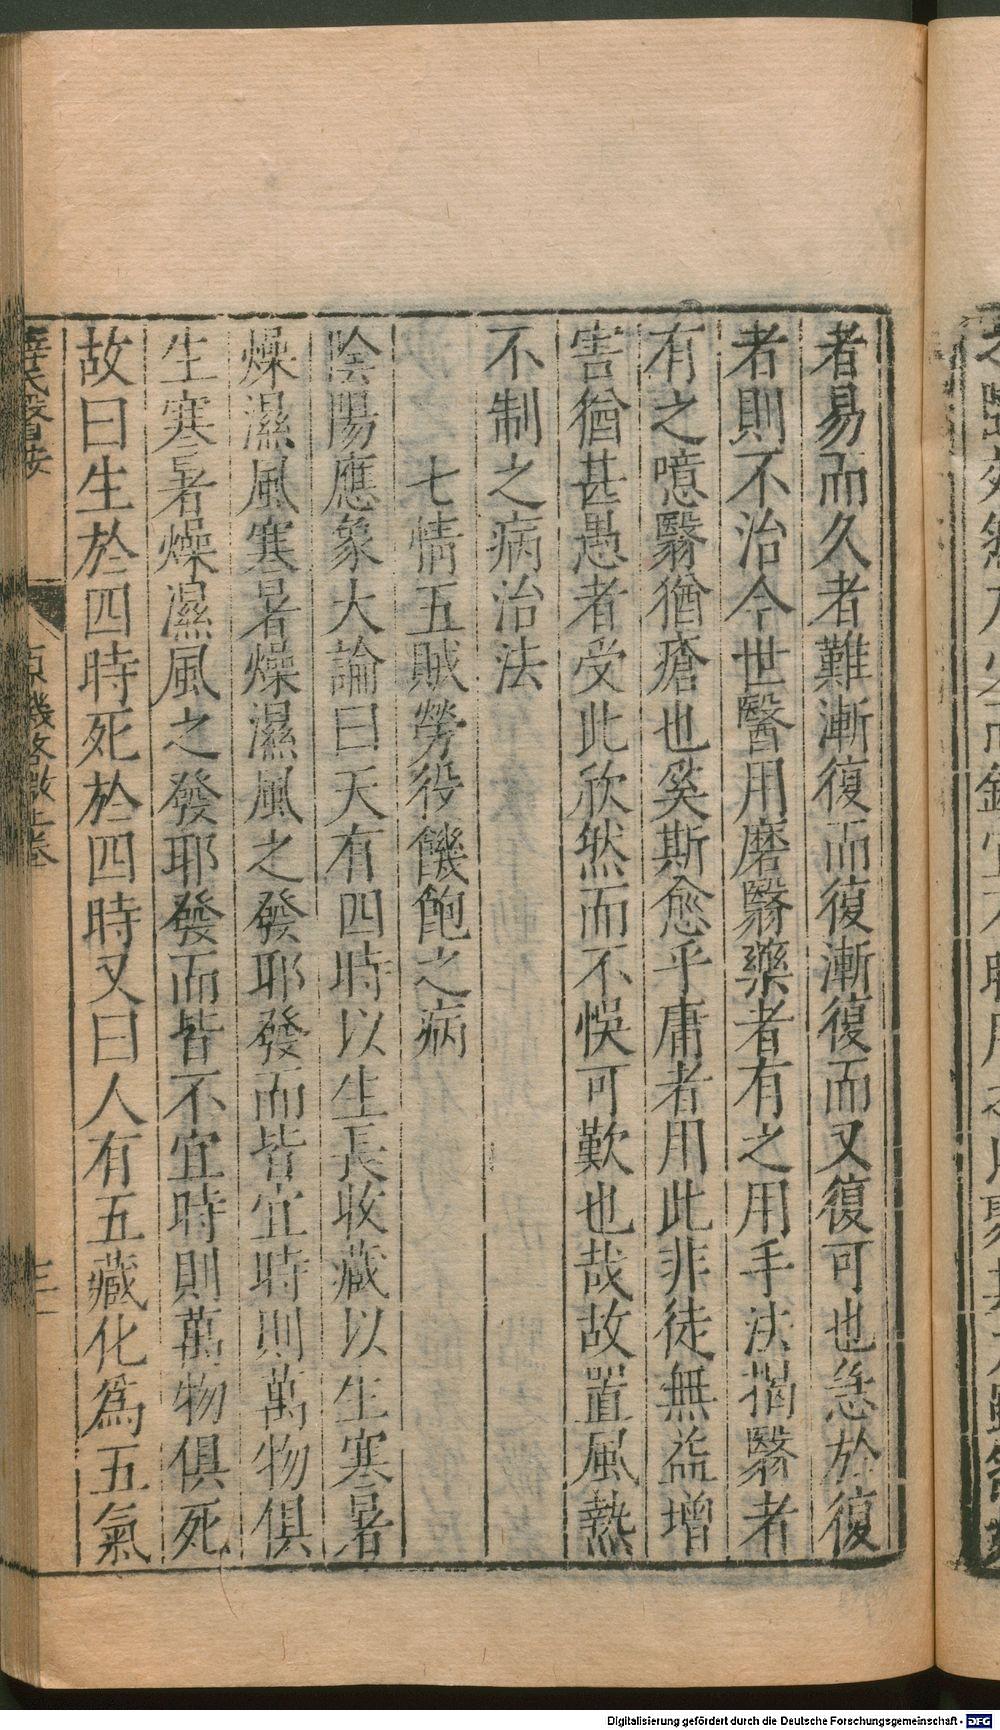 者易而久者難漸復而復漸復而又復可也急於復
者則不治今世醫用磨翳藥者有之用手法揭翳者
有之噫翳猶瘡也奚斯愈乎庸者用此非徒無益增
害猶甚愚者受此欣然而不悞可歎也哉故置風熱
不制之病治法
七情五賊勞役饑飽之病
陰陽應象大論曰天有四時以生長收藏以生寒暑
燥濕風寒暑燥濕風之發耶發而皆宜時則萬物俱
生寒暑燥濕風之發耶發而皆不宜時則萬物俱死
故曰生於四時死於四時又曰人有五藏化爲五氣
薛氏醫按
原機啓微上卷
三
Digitalisierung gefördert durch die Deutsche Forschungsgemeinschaft - DFG